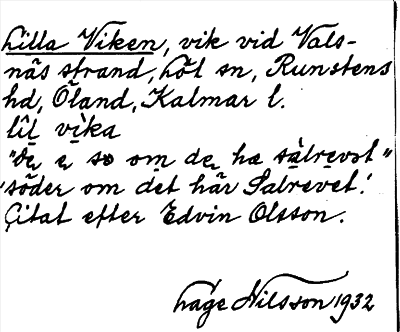 Lilla Viken, vik vid Vals-
näs strand, Löt sn, Runstens
hd, Öland, Kalmar l.
lil vika
"de e so om de hæ salrevet"
'söder om det här Salrevet.'
Citat efter Edvin Olsson.
Hage Nilsson 1932